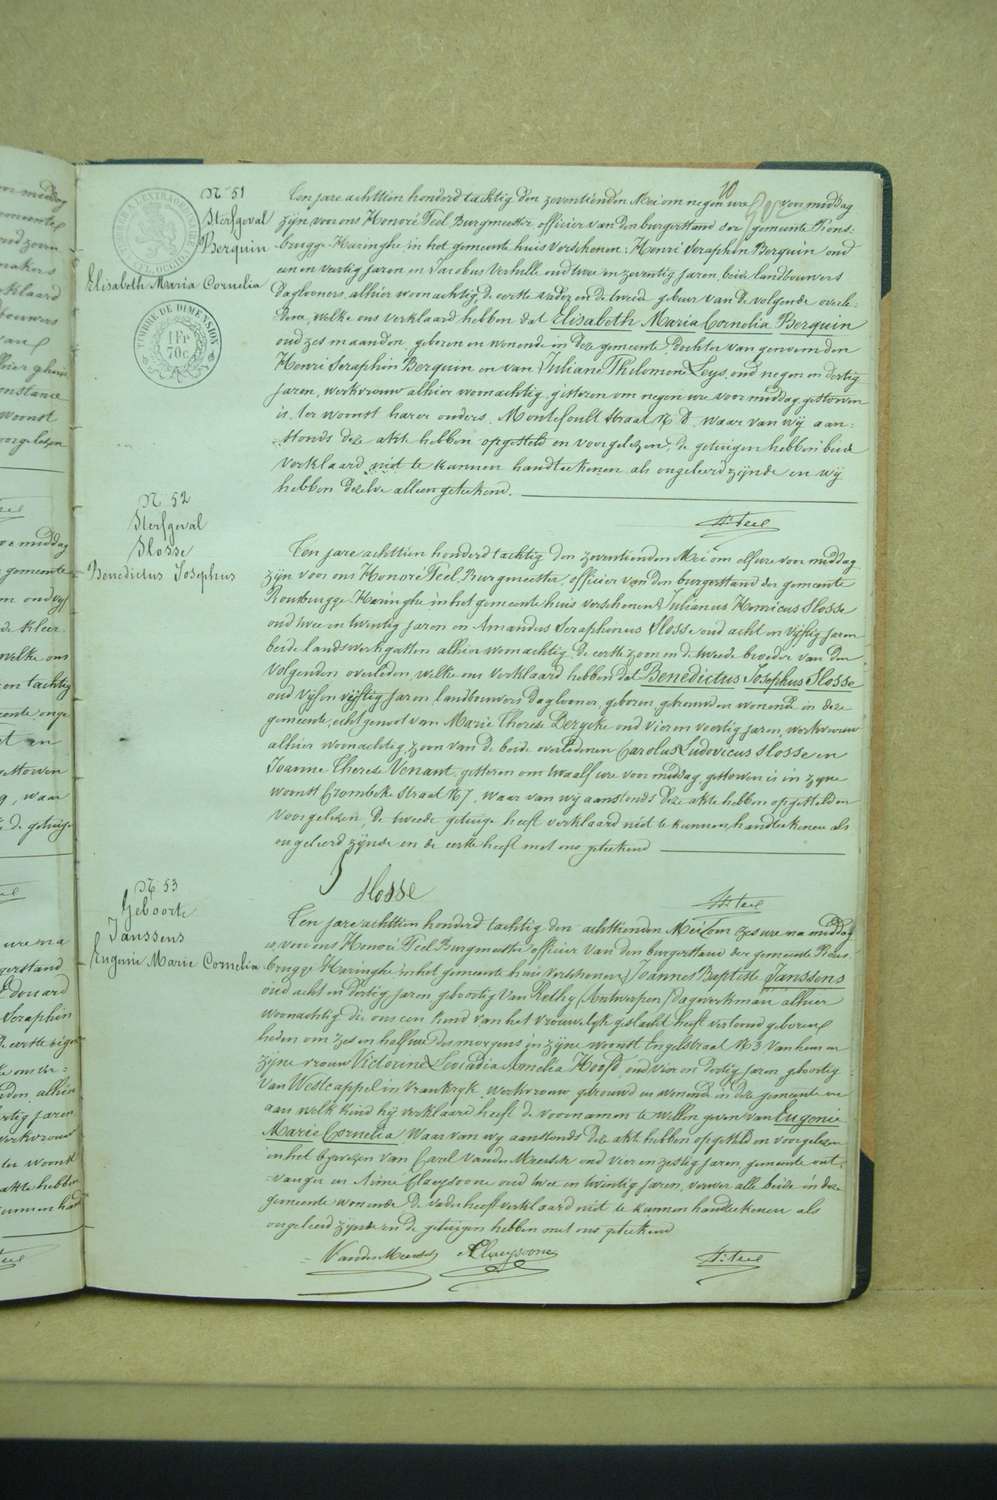 10
N° 51
Sterfgeval
Berquin
Elisabeth Maria Cornelia
TIMBRE DE DIMENSION
1 FR
70c
Ten jare achttien honderd tachtig den zeventienden Mei om negen ure voor middag
zijn voor ons Honoré Feel Burgmeester, officier van den burgerstand der gemeente Rous-
brugge Haringhe in het gemeente huis verschenen: Henri Seraphin Berquin oud
een en veertig jaren en Jacobus Verhille oud twee en zeventig jaren, beide landbouwers
daglooners, alhier woonachtig, de eerste vader en de tweede gebuur van de volgende overle-
dene, welke ons verklaard hebben dat Elisabeth Maria Cornelia Berquin
oud zes maanden, geboren en wonende in deze gemeente, dochter van genoemden
Henri Seraphin Berquin en van Juliane Philomene Leys, oud negen en dertig
jaren, werkvrouw alhier woonachtig, gisteren om negen ure voor middag gestorven
is, ter woonst harer ouders, straat N° 8, waar van wij aan-
stonds deze akte hebben opgesteld en voorgelezen, de getuigen hebben beide
verklaard niet te kunnen handteekenen als ongeleerd zijnde en wij
hebben dezelve alleen geteekend.
H. Feel
N° 52
Sterfgeval
Slosse
Benedictus Josephus
Ten jare achttien honderd tachtig den zeventienden Mei om elf ure voor middag
zijn voor ons Honoré Feel, Burgmeester, officier van den burgerstand der gemeente
Rousbrugge Haringhe in het gemeente huis verschenen Julianus Henricus Slosse
oud twee en twintig jaren en Amandus Seraphinus Slosse oud acht en vijftig jaren
beide landswerkgasten alhier woonachtig, de eerste zoon en de tweede broeder van den
volgenden overleden, welke ons verklaard hebben dat Benedictus Josephus Slosse
oud vijf en vijftig jaren landbouwers daglooner, geboren gehuwd en wonende in deze
gemeente, echtgenoot van Marie Therese Berycke oud vier en veertig jaren, werkvrouw
alhier woonachtig, zoon van de beide overledenen Carolus Ludovicus Slosse en
Joanne Therese Venant, gisteren om twaalf ure voor middag, gestorven is in zijne
woonst Crombeke straat N° 7, waar van wij aanstonds deze akte hebben opgesteld en
voorgelezen, de tweede getuige heeft verklaard niet te kunnen handteekenen als
ongeleerd zijnde en de eerste heeft met ons geteekend
Slosse
H. Feel
N° 53
Geboorte
Janssens
Eugenie Marie Cornelia
Ten jare achttien honderd tachtig den achttienden Mei om zes ure na middag
is, voor ons Honoré Feel Burgmeester officier van den burgerstand der gemeente Rous-
brugge Haringhe in het gemeente huis verschenen Joannes Baptiste Janssens
oud acht en dertig jaren, geboortig van Rethy (Antwerpen) dagwerkman alhier
woonachtig die ons een kind van het vrouwelijk geslacht heeft vertoond geboren
heden om zes en half ure des morgens in zijne woonst Engelstraat N° 3 van hem en
zijne vrouw Victorine Leocadia Amelia Hoofd, oud vier en dertig jaren geboortig
van Westcappel in Vrankryk, werkvrouw, getrouwd en wonende in deze gemeente en
aan welk kind hij verklaard heeft de voornamen te willen geven van Eugenie
Marie Cornelia, Waar van wij aanstonds deze akt hebben opgesteld en voorgelezen
in het bijwezen van Carel Vander Meersch oud vier en zestig jaren, gemeente ont-
vanger en Aimé Claeysoone oud twee en twintig jaren, verwer alle beide in deze
gemeente wonende de vader heeft verklaard niet te kunnen handteekenen als
ongeleerd zijnde en de getuigen hebben met ons geteekend
Vander Meersch
A Claeysoone
H. Feel